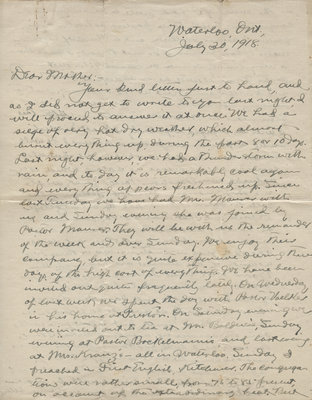 Waterloo, Ont.
July 20, 1918.
Dear Mother:-
Your kind letter just to hand, and
as I did not get to write to you last night I
will proceed to answer it at once. We had a
siege of very hot dry weather, which almost
burnt everything up, during the past 8 or 10 days.
Last night, however, we had a thunderstorm with
rain and to day it is remarkably cool again
and everything appears freshened up. Since
last Tuesday we have had Mrs. Maurer with
us and Sunday evening she was joined by
Pastor Maurer. They will be with us the remainder
of the week and over Sunday. We enjoy their
company, but it is quite expensive during these
days of the high cost of everything. We have been
invited out quite frequently lately. On Wednesday
of last week we spent the day with Pastor
in his home at Preston. On Saturday evening we
were invited out to tea at Mrs. Baldwin, Sunday
evening at Pastor Bockelmann's and last evening
at Mrs. - all in Waterloo. Sunday I
preached in First English Kitchener. The congrega-
tions were rather small, from 75 to present,
on account of the extraordinary heat. But